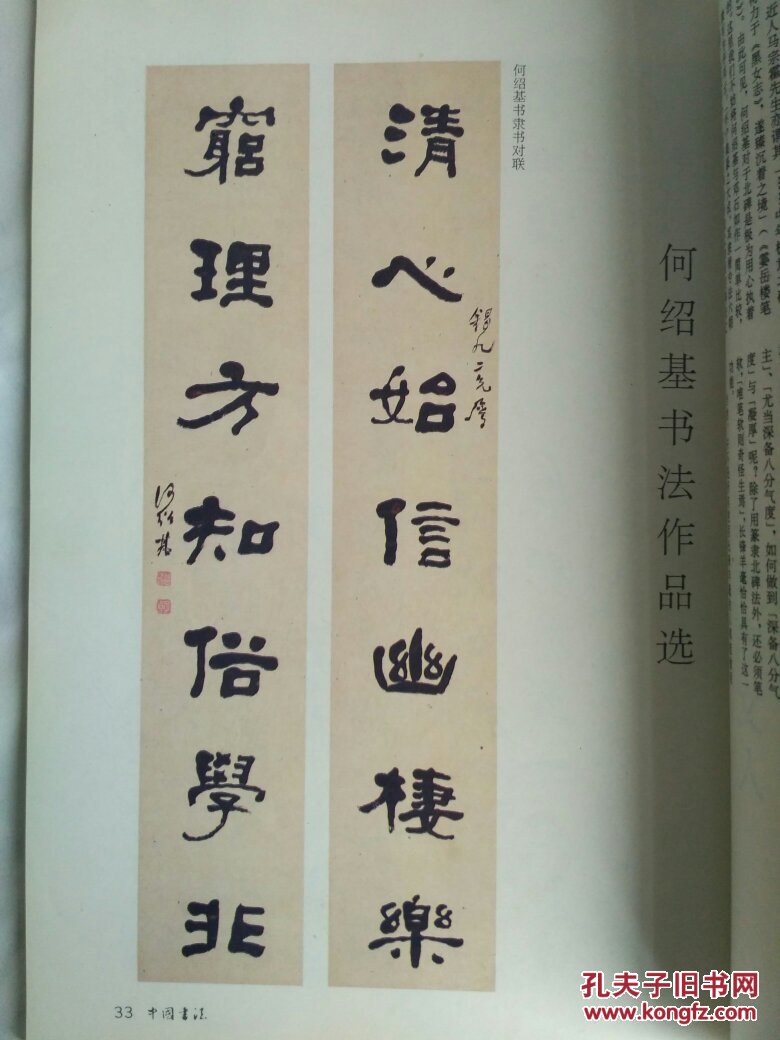 近人马宗霍
力于《黑女志》,遂臻沉着之境」(《霎岳楼笔
由此可见,何绍基对于北碑是极为用心执着
主」、「尤当深备八分气度」,如何做到「深备八分气
度」与「凝厚」呢?除了用篆隶北碑法外,还必须笔
软,「唯笔软则奇怪生焉」,长锋羊毫恰恰具有了这一
功能。
何绍基书法作品选
何绍基书隶书对联
锡九二兄属
清心始信幽棲樂
窮理方知俗學非
何绍基
33 中國書法
孔夫子旧书网
www.kongfz.com